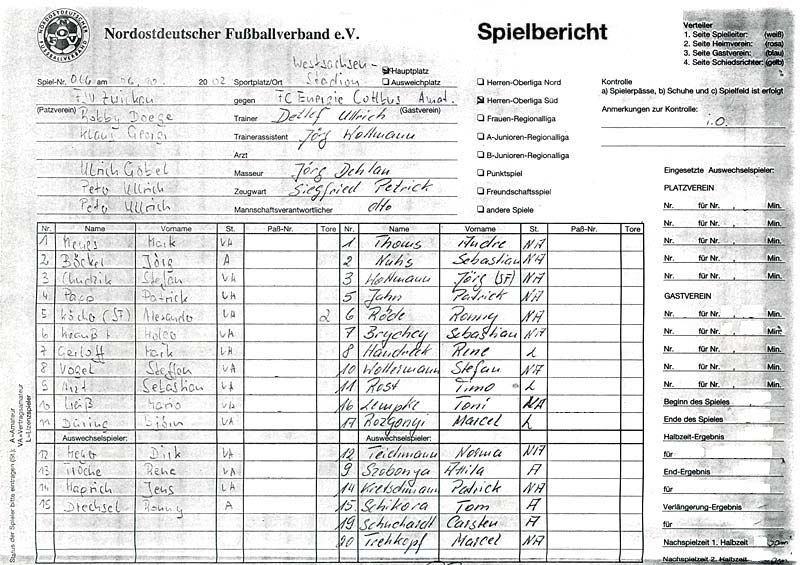 NORDOSTDEUTSCHER FUSSBALLVERBAND
Nordostdeutscher Fußballverband e.V.
Spielbericht
Verteiler
1. Seite Spielleiter: (weiß)
2. Seite Heimverein: (rosa)
3. Seite Gastverein: (blau)
4. Seite Schiedsrichter: (gelb)
Westsachsen-
Spiel-Nr. 2002 Sportplatz/Ort Stadion
Hauptplatz
Ausweichplatz
FSV Zwickau gegen FC Energie Cottbus Amat.
(Platzverein) (Gastverein)
Herren-Oberliga Nord
Herren-Oberliga Süd
Frauen-Regionalliga
A-Junioren-Regionalliga
B-Junioren-Regionalliga
Punktspiel
Freundschaftsspiel
andere Spiele
Kontrolle
a) Spielerpässe, b) Schuhe und c) Spielfeld ist erfolgt
Anmerkungen zur Kontrolle:
i.O.
Trainer Detlef Ullrich
Klaus Georgi Trainerassistent Jörg Wollmann
Arzt
Ulrich Göbel Masseur Jörg Dehlan
Peter Ullrich Zeugwart Siegfried Petrick
Peter Ullrich Mannschaftsverantwortlicher dto
Nr. Name Vorname St. Paß-Nr. Tore Nr. Name Vorname St. Paß-Nr. Tore
1 Mark VA 1 Thoms Andre NA
2 Böckel Jörg A 2 Nuhs Sebastian NA
3 Stefan VA 3 Wollmann Jörg (SF) NA
4 Patrick VA 5 Jahn Patrick NA
5 (SF) VA 2 6 Röde Ronny NA
6 VA 7 Brychcy Sebastian NA
7 Gerloff Mark VA 8 Handreck Rene L
8 Vogel Steffen VA 10 Woltermann Stefan NA
9 Arzt Sebastian VA 11 Rost Timo L
10 Mario VA 16 Lempke Toni NA
11 Düring Björn VA 17 Rozgonyi Marcel L
Auswechselspieler: Auswechselspieler:
12 Dirk VA 12 Teichmann Norman NA
13 Rene VA 9 Szobonya Attila A
14 Haprich Jens VA 14 Kretschmann Patrick NA
15 Drechsel Ronny A 15 Schikora Tom A
19 Schuchardt Carsten A
20 Tischkopf Marcel NA
Status der Spieler bitte eintragen (St.): A=Amateur
VA=Vertragsamateur
L=Lizenzspieler
Eingesetzte Auswechselspieler:
PLATZVEREIN
Nr. für Nr. , Min.
Nr. für Nr. , Min.
Nr. für Nr. , Min.
Nr. für Nr. , Min.
Nr. für Nr. , Min.
GASTVEREIN
Nr. für Nr. , Min.
Nr. für Nr. , Min.
Nr. für Nr. , Min.
Nr. für Nr. , Min.
Nr. für Nr. , Min.
Beginn des Spieles
Ende des Spieles
Halbzeit-Ergebnis
für
End-Ergebnis
für
Verlängerung-Ergebnis
für
Nachspielzeit 1. Halbzeit
Nachspielzeit 2. Halbzeit